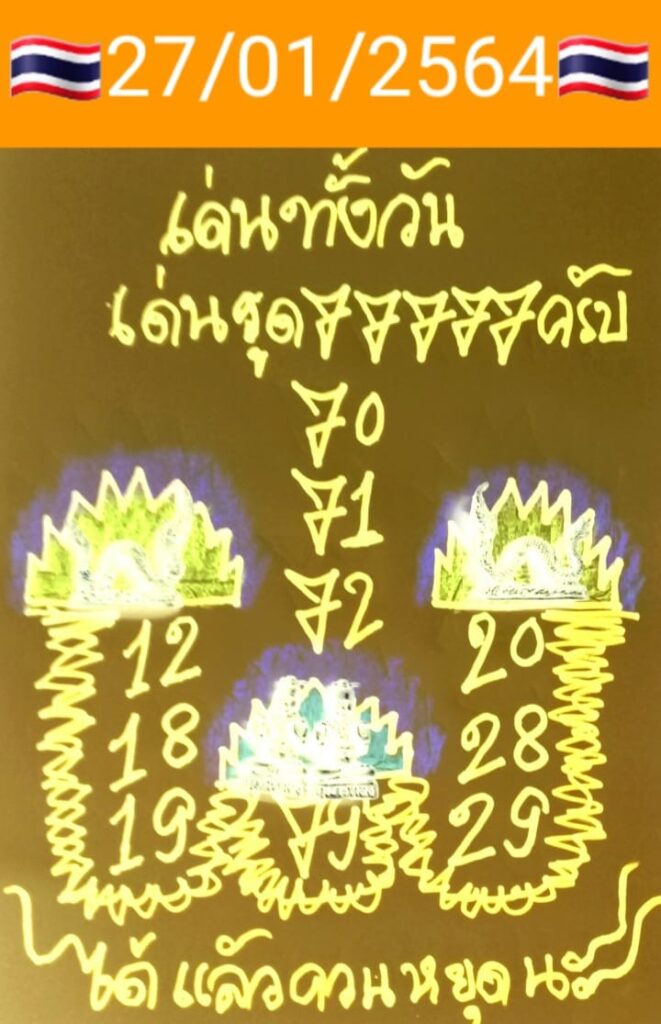 27/01/2564
เด่นทั้งวัน
เด่นรูด77777ครับ
70
71
72
12 20
18 28
19 79 29
ได้แล้วควนหยุดนะ